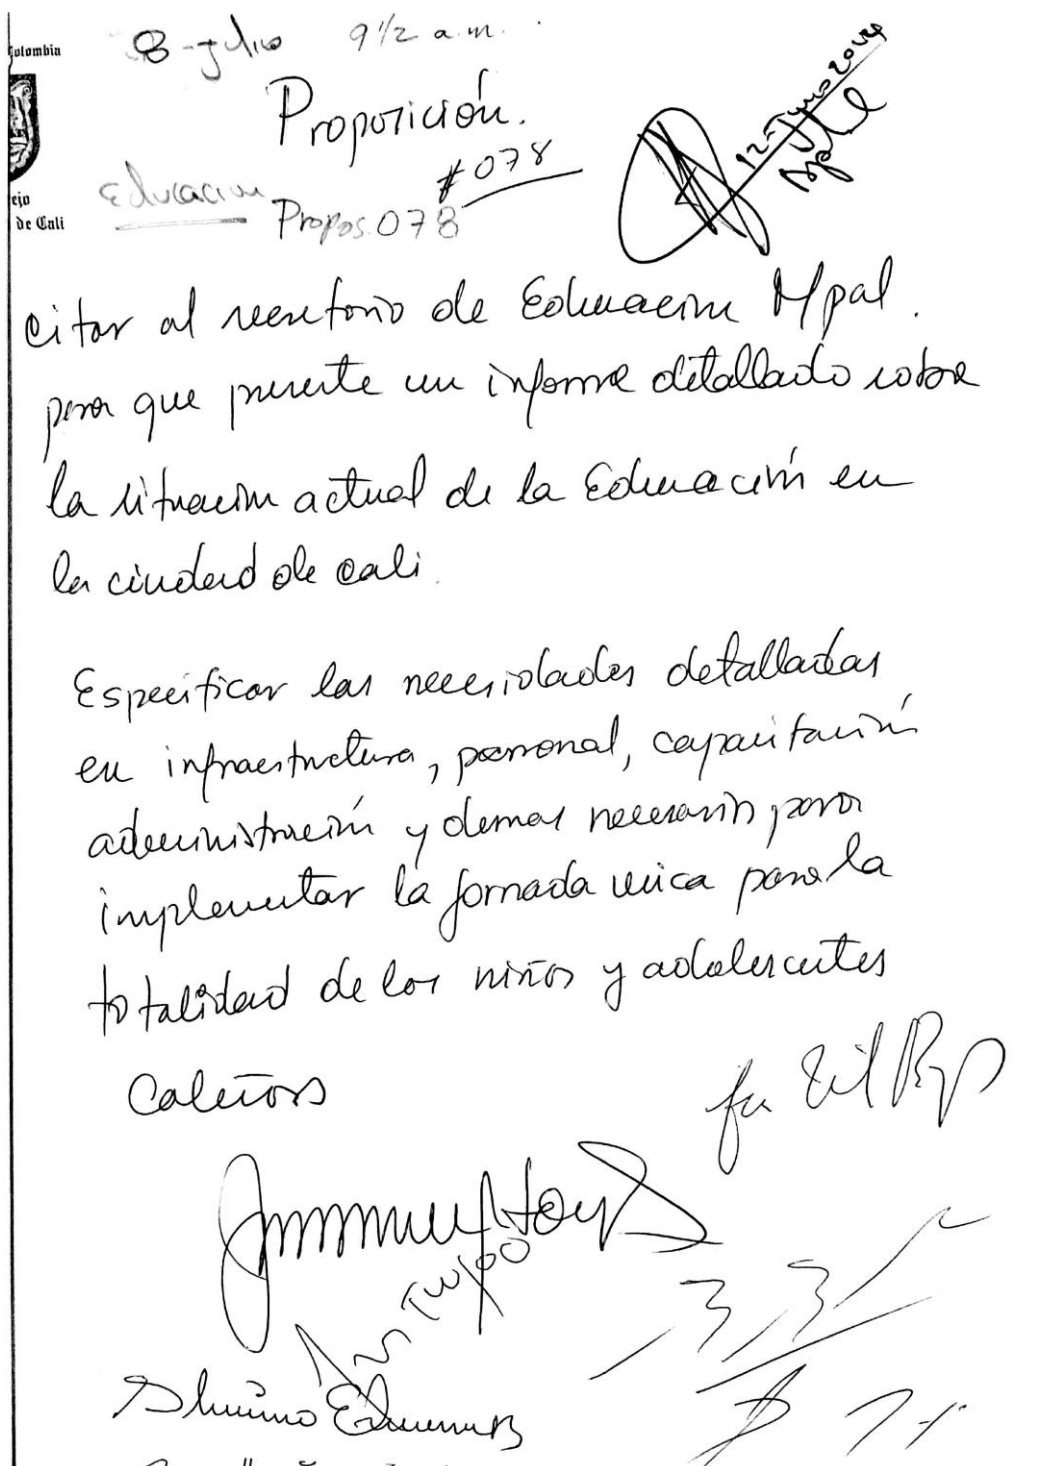 Colombia
8-julio 9 1/2 a.m.
Proposición.
12-Junio 2014
# 078
Educación
Propos. 078
ejo
de Cali
Citar al secretario de Educación Mpal.
para que presente un informe detallado sobre
la situación actual de la Educación en
la ciudad de Cali.
Especificar las necesidades detalladas
en infraestructura, personal, capacitación
administración y demas necesarios para
implementar la jornada unica para la
totalidad de los niños y adolescentes
Caleños